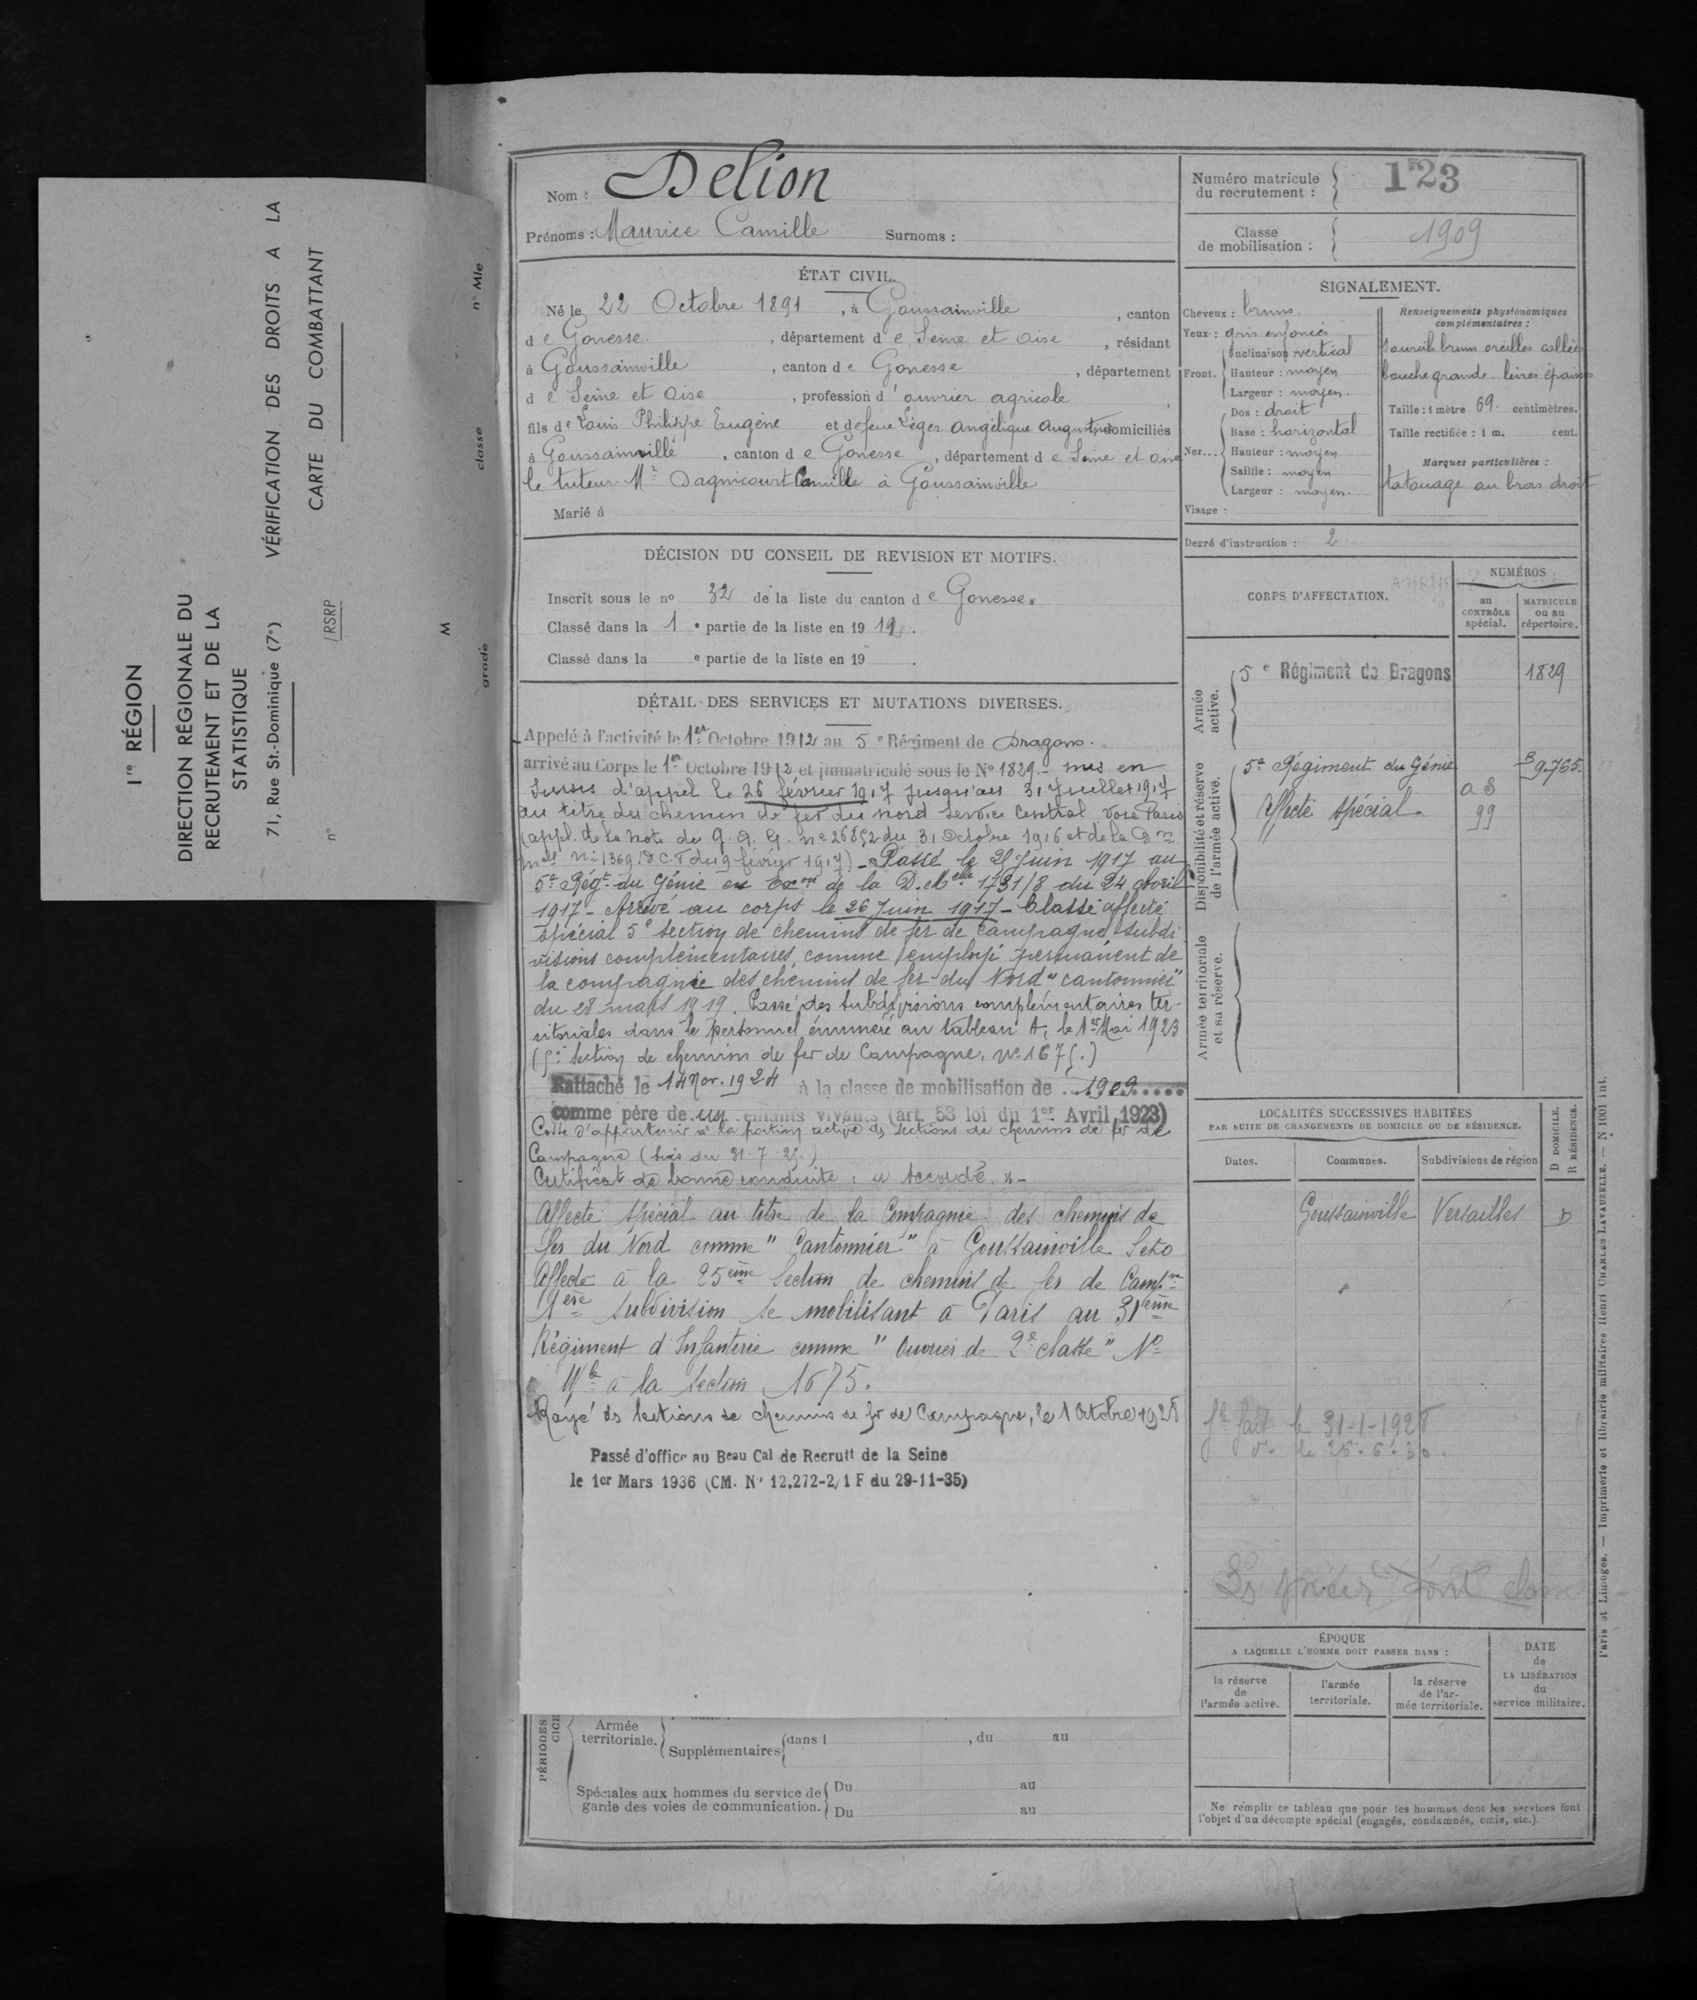 1re RÉGION
DIRECTION RÉGIONALE DU
RECRUTEMENT ET DE LA
STATISTIQUE
71, Rue St.-Dominique (7e)
n° / RSRP
VÉRIFICATION DES DROITS A LA
CARTE DU COMBATTANT
M grade classe n° Mle
Nom : Delion
Prénoms : Maurice Camille Surnoms :
ÉTAT CIVIL.
Né le 22 Octobre 1891, à Goussainville, canton
de Gonesse, département de Seine et Oise, résidant
à Goussainville, canton de Gonesse, département
de Seine et Oise, profession d'ouvrier agricole,
fils de Louis Philippe Eugène et de feue Léger Angélique Augustine domiciliés
à Goussainville, canton de Gonesse, département de Seine et Oise
le tuteur Mr Dagnicourt Camille à Goussainville
Marié à
DÉCISION DU CONSEIL DE REVISION ET MOTIFS.
Inscrit sous le no 32 de la liste du canton de Gonesse.
Classé dans la 1e partie de la liste en 19
Classé dans la e partie de la liste en 19 .
DÉTAIL DES SERVICES ET MUTATIONS DIVERSES.
Appelé à l'activité le 1er Octobre 1912 au 5e Régiment de Dragons.
arrivé au Corps le 1er Octobre 1912 et immatriculé sous le No 1829.- mis en
sursis d'appel le 26 février 1917 jusqu'au 31 Juillet 1917
au titre du chemin de fer du nord Service Central Voie Paris
(appl. de la note du G.Q.G. no 26852 du 31 Octobre 1916 et de la Don
du 9 février 1917) - Passé le 25 Juin 1917 au
5e Régt du Génie en Exon de la D. Melle 1731/8 du 24 Avril
1917 - Arrivé au corps le 26 Juin 1917 - Classé affecté
spécial 5e section de chemins de fer de campagne, subdi
visions complémentaires, comme employé permanent de
la compagnie des chemins de fer du Nord "cantonnier"
du 28 mars 1919. Passé des subdivisions complémentaires ter-
ritoriales dans le personnel énuméré au tableau A, le 1er Mai 1923
(5e Section de chemins de fer de Campagne, No 1675.)
Rattaché le 14 Nov. 1924 à la classe de mobilisation de 1909
comme père de un enfants vivants (art. 58 loi du 1er Avril 1923)
Cesse d'appartenir à la portion active des Sections de chemins de fer de
Campagne (avis du 31.7.25.)
Certificat de bonne conduite : "Accordé" -
Affecté spécial au titre de la Compagnie des chemins de
fer du Nord comme "Cantonnier" à Goussainville Seto
Affecté à la 25ème Section de chemins de fer de Campne
1ère subdivision se mobilisant à Paris au 31ème
Régiment d'Infanterie comme "Ouvrier de 2e classe" No
Mle à la section 1675.
Rayé des sections de chemins de fer de Campagne, le 1 Octobre 1928
Passé d'office au Beau Cal de Recrutt de la Seine
le 1er Mars 1936 (CM. No 12.272-2/1 F du 29-11-35)
PÉRIODES
Armée territoriale.
Supplémentaires dans l , du au
Spéciales aux hommes du service de garde des voies de communication.
Du au
Du au
Numéro matricule du recrutement : 123
Classe de mobilisation : 1909
SIGNALEMENT.
Cheveux : bruns
Yeux : gris enfoncés
Front. Inclinaison vertical
Hauteur : moyen
Largeur : moyen.
Nez... Dos : droit
Base : horizontal
Hauteur : moyen
Saillie : moyen
Largeur : moyen.
Visage :
Renseignements physionomiques complémentaires :
Sourcils bruns oreilles collées
bouche grande - lèvres épaisses
Taille : 1 mètre 69 centimètres.
Taille rectifiée : 1 m. cent.
Marques particulières :
tatouage au bras droit
Degré d'instruction : 2
CORPS D'AFFECTATION.
NUMÉROS
au CONTRÔLE spécial.
MATRICULE ou au répertoire.
Armée active.
5e Régiment de Dragons 1829
Disponibilité et réserve de l'armée active.
5e Régiment du Génie 9.765.
Affecté spécial. a S 99
Armée territoriale et sa réserve.
LOCALITÉS SUCCESSIVES HABITÉES
PAR SUITE DE CHANGEMENTS DE DOMICILE OU DE RÉSIDENCE.
Dates. Communes. Subdivisions de région D DOMICILE. R RÉSIDENCE.
Goussainville Versailles D
fait le 31-1-1928
le 25.6.30.
ÉPOQUE
A LAQUELLE L'HOMME DOIT PASSER DANS :
la réserve de l'armée active.
l'armée territoriale.
la réserve de l'armée territoriale.
DATE de LA LIBÉRATION du service militaire.
Ne remplir ce tableau que pour les hommes dont les services font
l'objet d'un décompte spécial (engagés, condamnés, omis, etc.).
Paris et Limoges. — Imprimerie et librairie militaires Henri CHARLES-LAVAUZELLE. — N 1001 int.